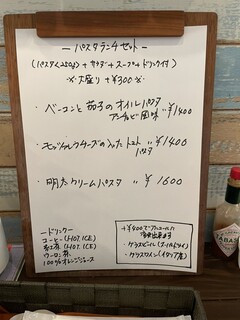 ーパスタランチセットー
(パスタ(250g)+サラダ+スープ+ドリンク付)
※大盛り+¥300※
・ベーコンと茄子のオイルパスタ
アンチョビ風味 〃¥1400
・モッツァレラチーズの入ったトマト
パスタ 〃¥1400
・明太クリームパスタ 〃¥1600
ードリンクー
コーヒー(HOT, ICE)
紅茶(HOT, ICE)
ウーロン茶
100%オレンジジュース
+¥400で アルコールに
変更出来ます
・グラスビール
・グラスワイン(イタリア産)